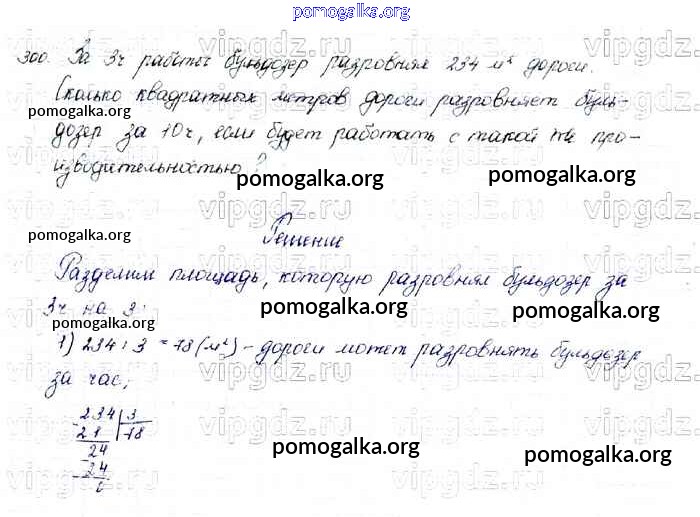 pomogalka.org
300. За 3ч работы бульдозер разровнял 234 м² дороги.
Сколько квадратных метров дороги разровняет буль-
pomogalka.org
дозер за 10ч, если будет работать с такой же про-
изводительностью?
pomogalka.org
pomogalka.org
pomogalka.org
Решение
Разделим площадь, которую разровнял бульдозер за
3ч на 3.
pomogalka.org
pomogalka.org
pomogalka.org
1) 234 : 3 = 78 (м²) - дороги может разровнять бульдозер
за час;
234 | 3
21 | 78
24
24
pomogalka.org
pomogalka.org
vipgdz.ru vipgdz.ru vipgdz.ru